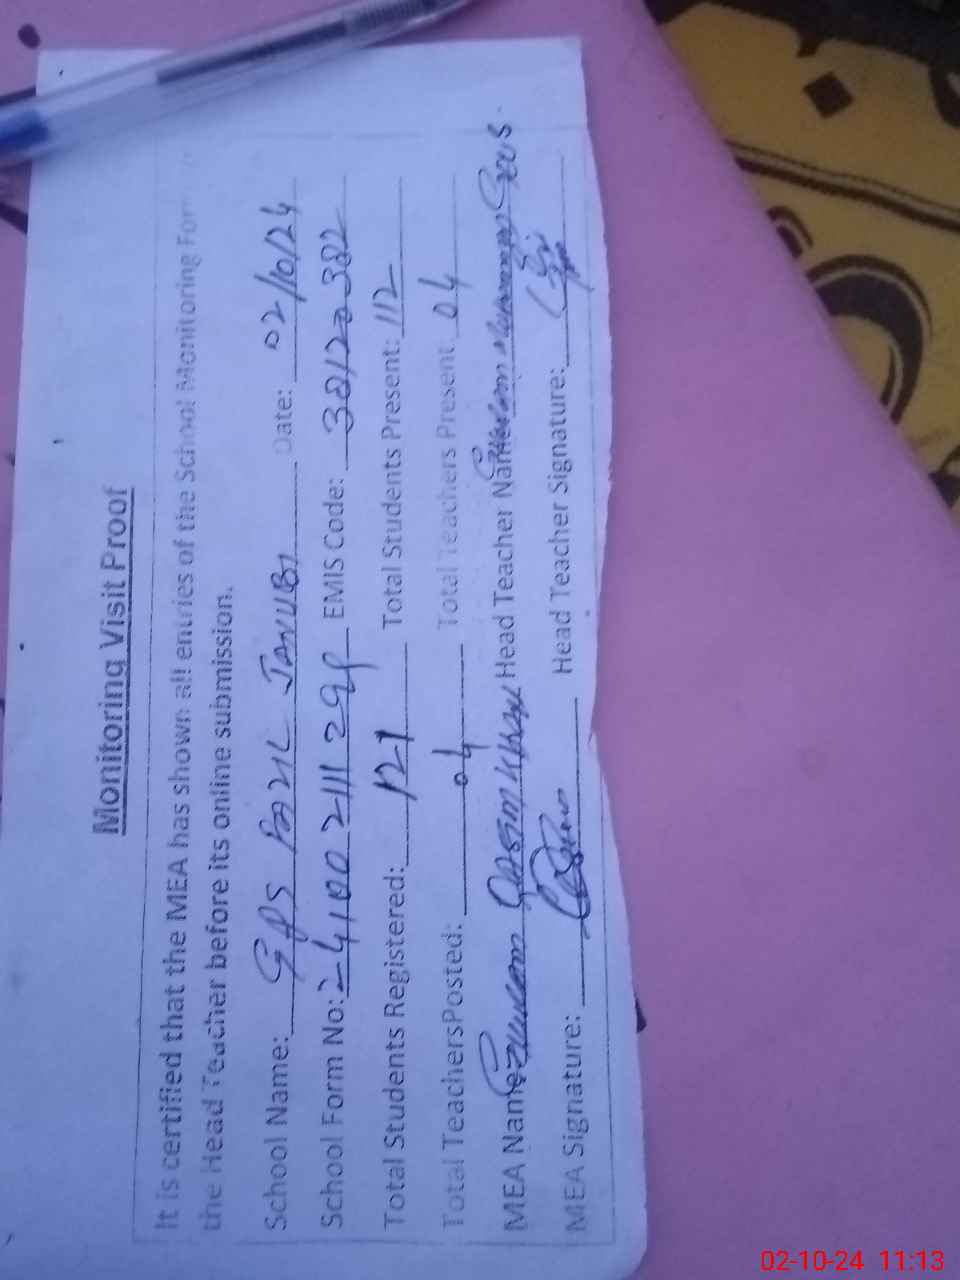 Monitoring Visit Proof
It is certified that the MEA has shown all entries of the School Monitoring Form
the Head Teacher before its online submission.
School Name: GPS FAZIL JANUBI Date: 02/10/24
School Form No: EMIS Code:
Total Students Registered: 121 Total Students Present: 112
Total Teachers Posted: 04 Total Teachers Present 04
MEA Name Qasim Khan Head Teacher Name
MEA Signature: Head Teacher Signature:
02-10-24 11:13